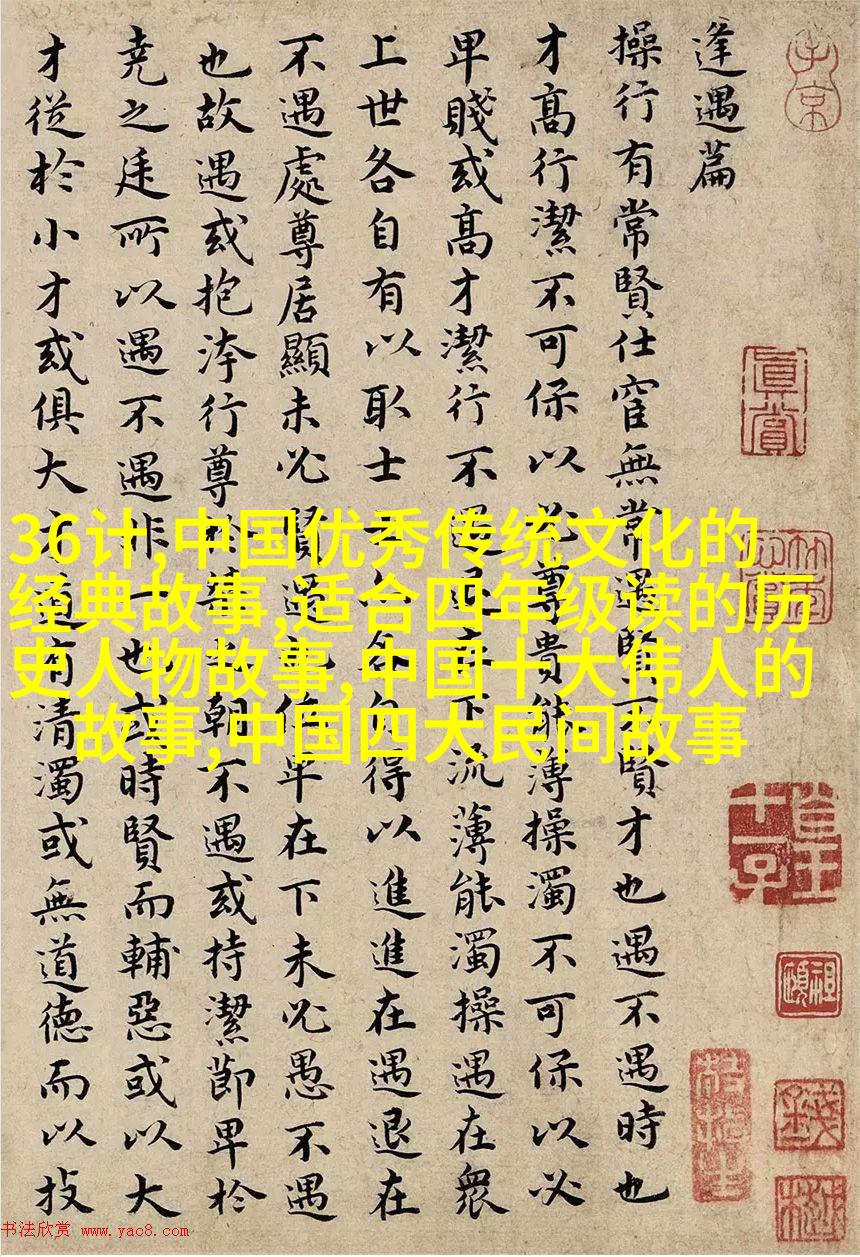 逢遇篇
操行有常賢仕宦無常遇賢不賢才也遇不遇時也
才高行潔不可保以必尊貴能薄操濁不可保以必
卑賤或高才潔行不遇退在下流薄能濁操遇在衆
上世各自有以取士士亦各自得以進進在遇退在
不遇處尊居顯未必賢遇也位卑在下未必愚不遇
也故遇或抱洿行尊於桀之朝不遇或持潔節卑於
堯之廷所以遇不遇非一也或時賢而輔惡或以大
才從於小才或俱大才道有清濁或無道德而以技
子京
眞賞
36计,中国优秀传统文化的
经典故事,适合四年级读的历
史人物故事,中国十大伟人的
故事,中国四大民间故事
书法欣赏 www.yac8.com